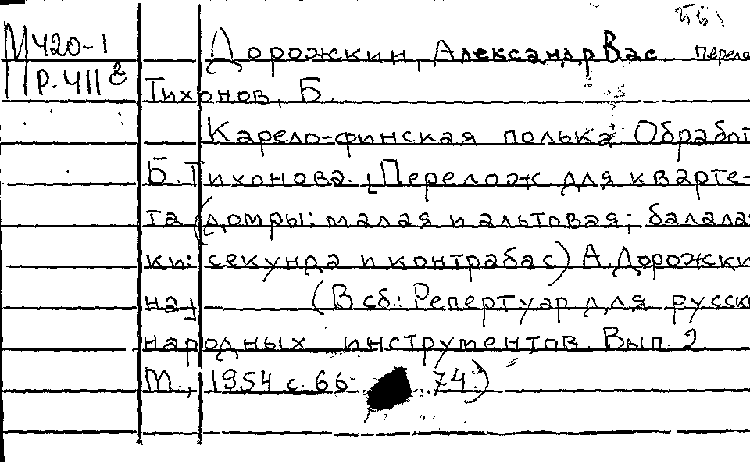 М420-1 Дорожкин, Александр Вас перело
Пр.411в Тихонов, Б.
Карело-финская полька Обработ
Б. Тихонова. [Перелож для кварте-
та (домры: малая и альтовая; балала
ки: секунда и контрабас) А. Дорожки
на] (В сб: Репертуар для русск
народных инструментов. Вып. 2
М., 1954 с. 66 74)